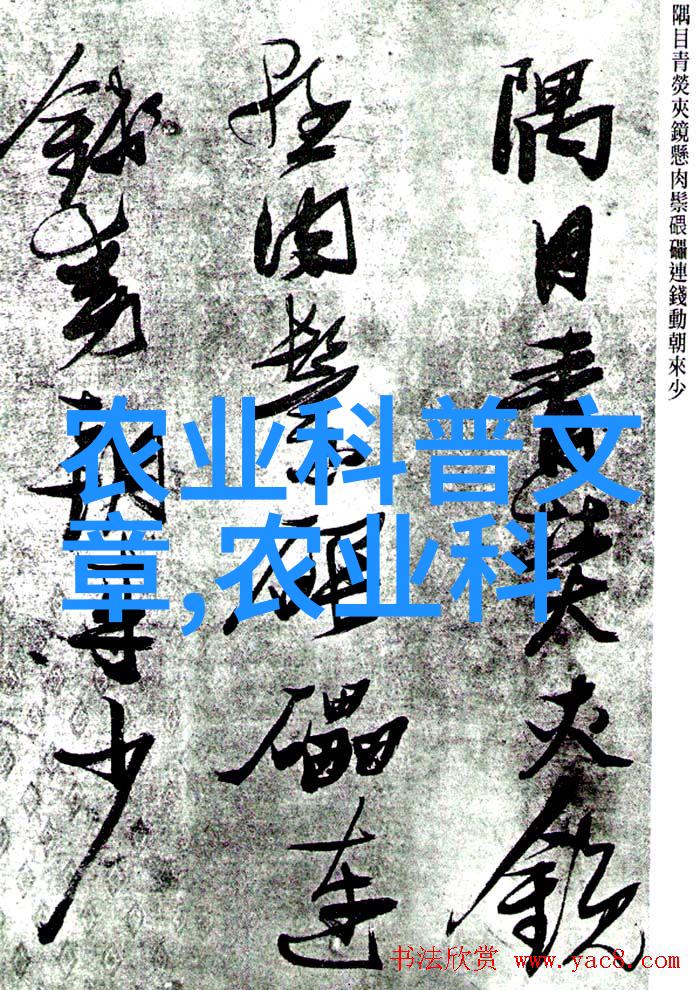 隅目青熒夾鏡懸肉鬃碨礧連錢動朝來少
隅目青熒夾鏡
懸肉鬃碨礧連
錢動朝來少
农业科普文
章,农业科
书法欣赏 www.yac8.com